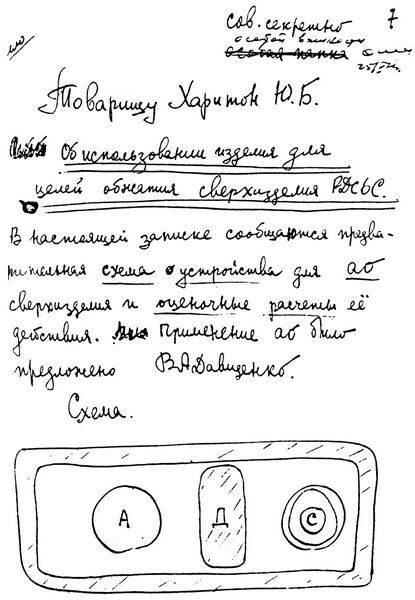 7
сов. секретно
особой важности
Особая папка
Товарищу Харитон Ю.Б.
Об использовании изделия для
целей обжатия сверхизделия РДС6С.
В настоящей записке сообщаются предва-
рительная схема устройства для АО
сверхизделия и оценочные расчеты её
действия. Применение АО было
предложено В.А.Давиденко.
Схема.
А Д С